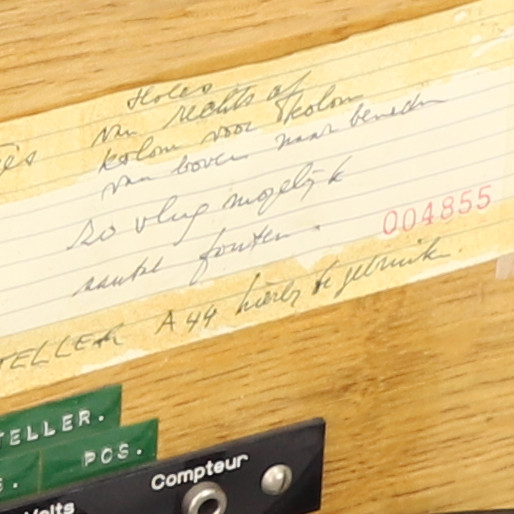 Holes
van rechts af
kolom voor kolom
van boven naar beneden
zo vlug mogelijk
fouten.
004855
TELLER A44 hierbij te gebruik
TELLER.
S. PCS.
Volts Compteur